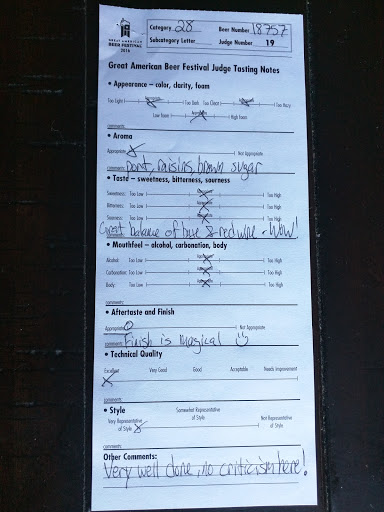 GREAT AMERICAN
BEER FESTIVAL
2016
Category 28 Beer Number 18757
Subcategory Letter Judge Number 19
Great American Beer Festival Judge Tasting Notes
• Appearance – color, clarity, foam
Too Light Appropriate Too Dark Too Clear Too Hazy
Low Foam Appropriate High Foam
comments:
• Aroma
Appropriate Not Appropriate
comments: port, raisins, brown sugar
• Taste – sweetness, bitterness, sourness
Sweetness: Too Low Appropriate Too High
Bitterness: Too Low Appropriate Too High
Sourness: Too Low Appropriate Too High
Great balance of & red wine - Wow!
• Mouthfeel – alcohol, carbonation, body
Alcohol: Too Low Appropriate Too High
Carbonation: Too Low Appropriate Too High
Body: Too Low Appropriate Too High
comments:
• Aftertaste and Finish
Appropriate Not Appropriate
comments: Finish is magical
• Technical Quality
Excellent Very Good Good Acceptable Needs Improvement
comments:
• Style
Very Representative of Style Somewhat Representative of Style Not Representative of Style
comments:
Other Comments:
Very well done, no criticism here!